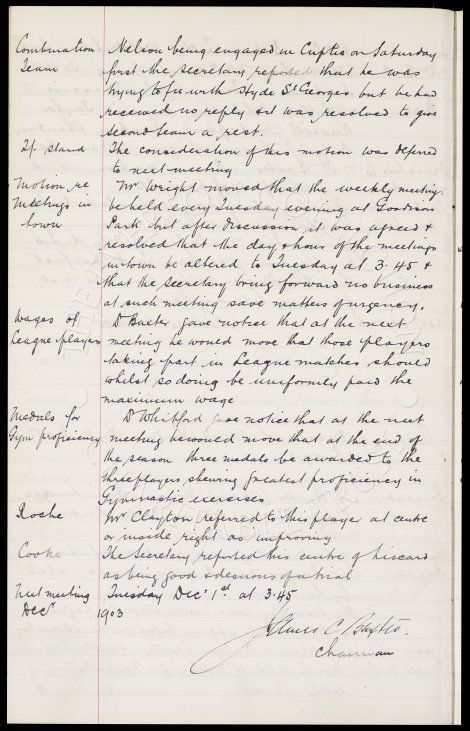 Combination Nelson being engaged in Cupties on Saturday
Team first the secretary reported that he was
trying to fix with Hyde St Georges but he had
received no reply & it was resolved to give
second team a rest.
The consideration of this motion was deferred
to next meeting
Motion re Mr Wright moved that the weekly meetings
Meetings in be held every Tuesday evening at Goodison
town Park but after discussion it was agreed &
resolved that the day & hour of the meetings
in town be altered to Tuesday at 3.45 &
that the secretary bring forward no business
at such meeting save matters of urgency.
Wages of Dr Baxter gave notice that at the next
League players meeting he would move that those players
taking part in League matches should
whilst so doing be uniformly paid the
maximum wage
Medals for Dr Whitford gave notice that at the next
Gym proficiency meeting he would move that at the end of
the season three medals be awarded to the
three players shewing greatest proficiency in
Gymnastic exercises
Roche Mr Clayton referred to this player at centre
or inside right as improving
Cooke The Secretary reported this centre of Liscard
as being good & desirous of a trial
Next meeting Tuesday Decr 1st at 3.45
Decr 1903
James C. Baxter.
Chairman